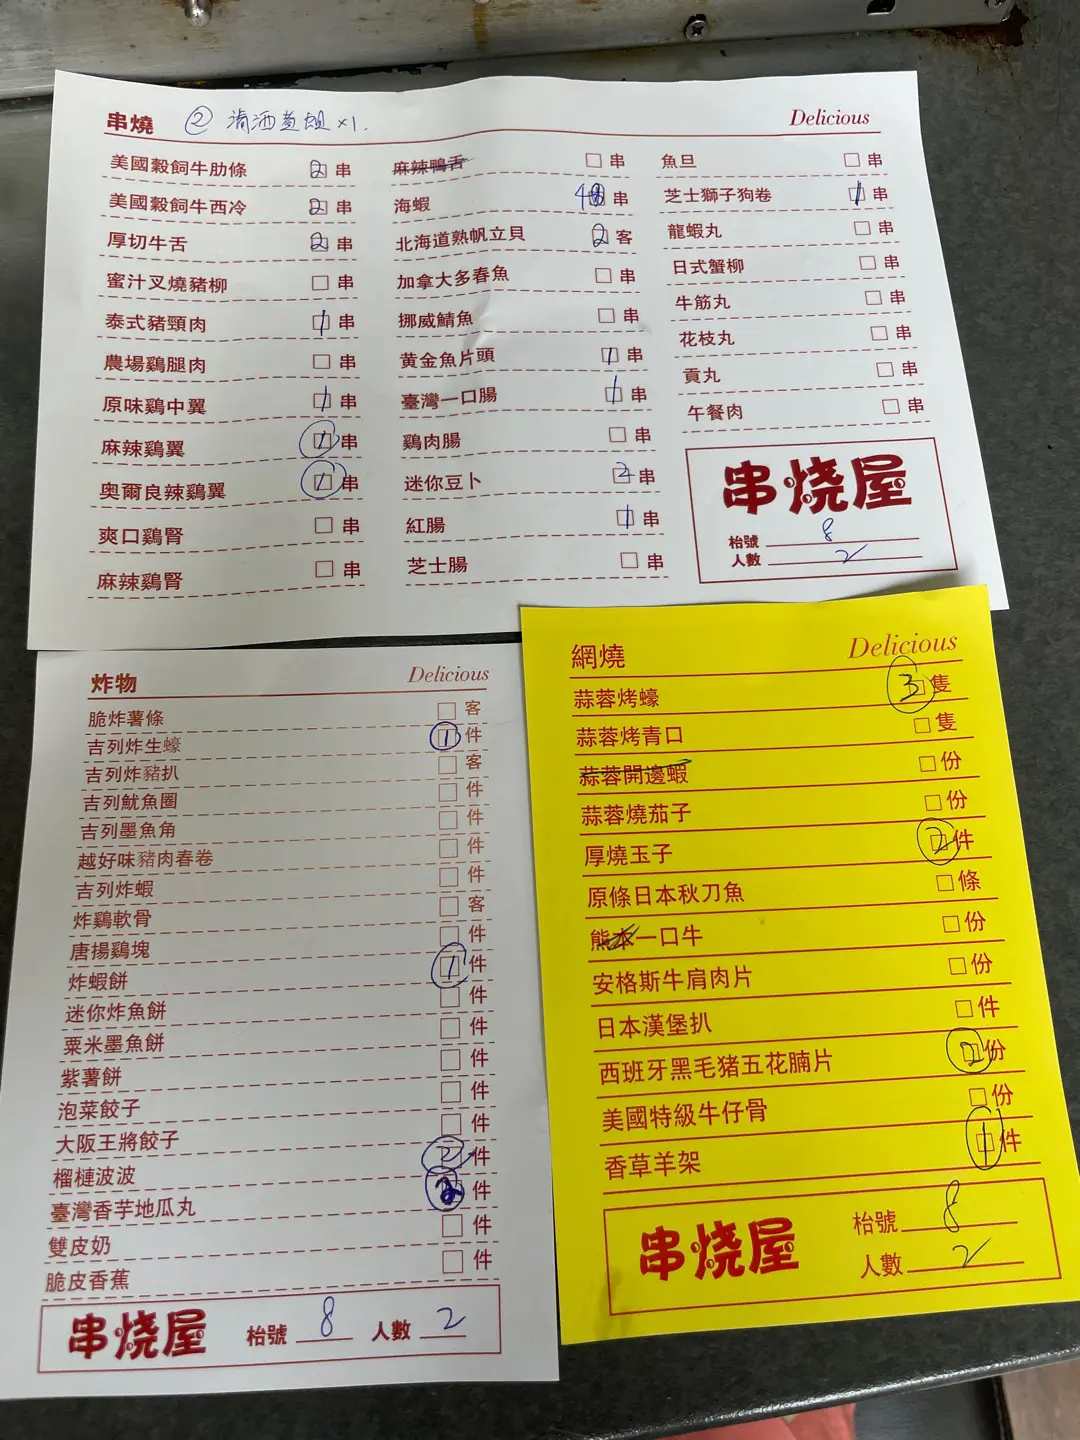 串燒 ② 清酒煮蜆 ×1. Delicious
美國穀飼牛肋條 2 串
美國穀飼牛西冷 2 串
厚切牛舌 2 串
蜜汁叉燒豬柳 串
泰式豬頸肉 1 串
農場鷄腿肉 串
原味鷄中翼 1 串
麻辣鷄翼 1 串
奧爾良辣鷄翼 1 串
爽口鷄腎 串
麻辣鷄腎 串
麻辣鴨舌 串
海蝦 4 串
北海道熟帆立貝 2 客
加拿大多春魚 串
挪威鯖魚 串
黄金魚片頭 1 串
臺灣一口腸 1 串
鷄肉腸 串
迷你豆卜 2 串
紅腸 1 串
芝士腸 串
魚旦 串
芝士獅子狗卷 1 串
龍蝦丸 串
日式蟹柳 串
牛筋丸 串
花枝丸 串
貢丸 串
午餐肉 串
串烧屋
枱號 8
人數 2
炸物 Delicious
脆炸薯條 客
吉列炸生蠔 1 件
吉列炸豬扒 客
吉列魷魚圈 件
吉列墨魚角 件
越好味豬肉春卷 件
吉列炸蝦 件
炸鷄軟骨 客
唐揚鷄塊 件
炸蝦餅 1 件
迷你炸魚餅 件
粟米墨魚餅 件
紫薯餅 件
泡菜餃子 件
大阪王將餃子 件
榴槤波波 2 件
臺灣香芋地瓜丸 2 件
雙皮奶 件
脆皮香蕉 件
串烧屋 枱號 8 人數 2
網燒 Delicious
蒜蓉烤蠔 3 隻
蒜蓉烤青口 隻
蒜蓉開邊蝦 份
蒜蓉燒茄子 份
厚燒玉子 2 件
原條日本秋刀魚 條
熊本一口牛 份
安格斯牛肩肉片 份
日本漢堡扒 件
西班牙黑毛猪五花腩片 2 份
美國特級牛仔骨 份
香草羊架 1 件
串烧屋
枱號 8
人數 2